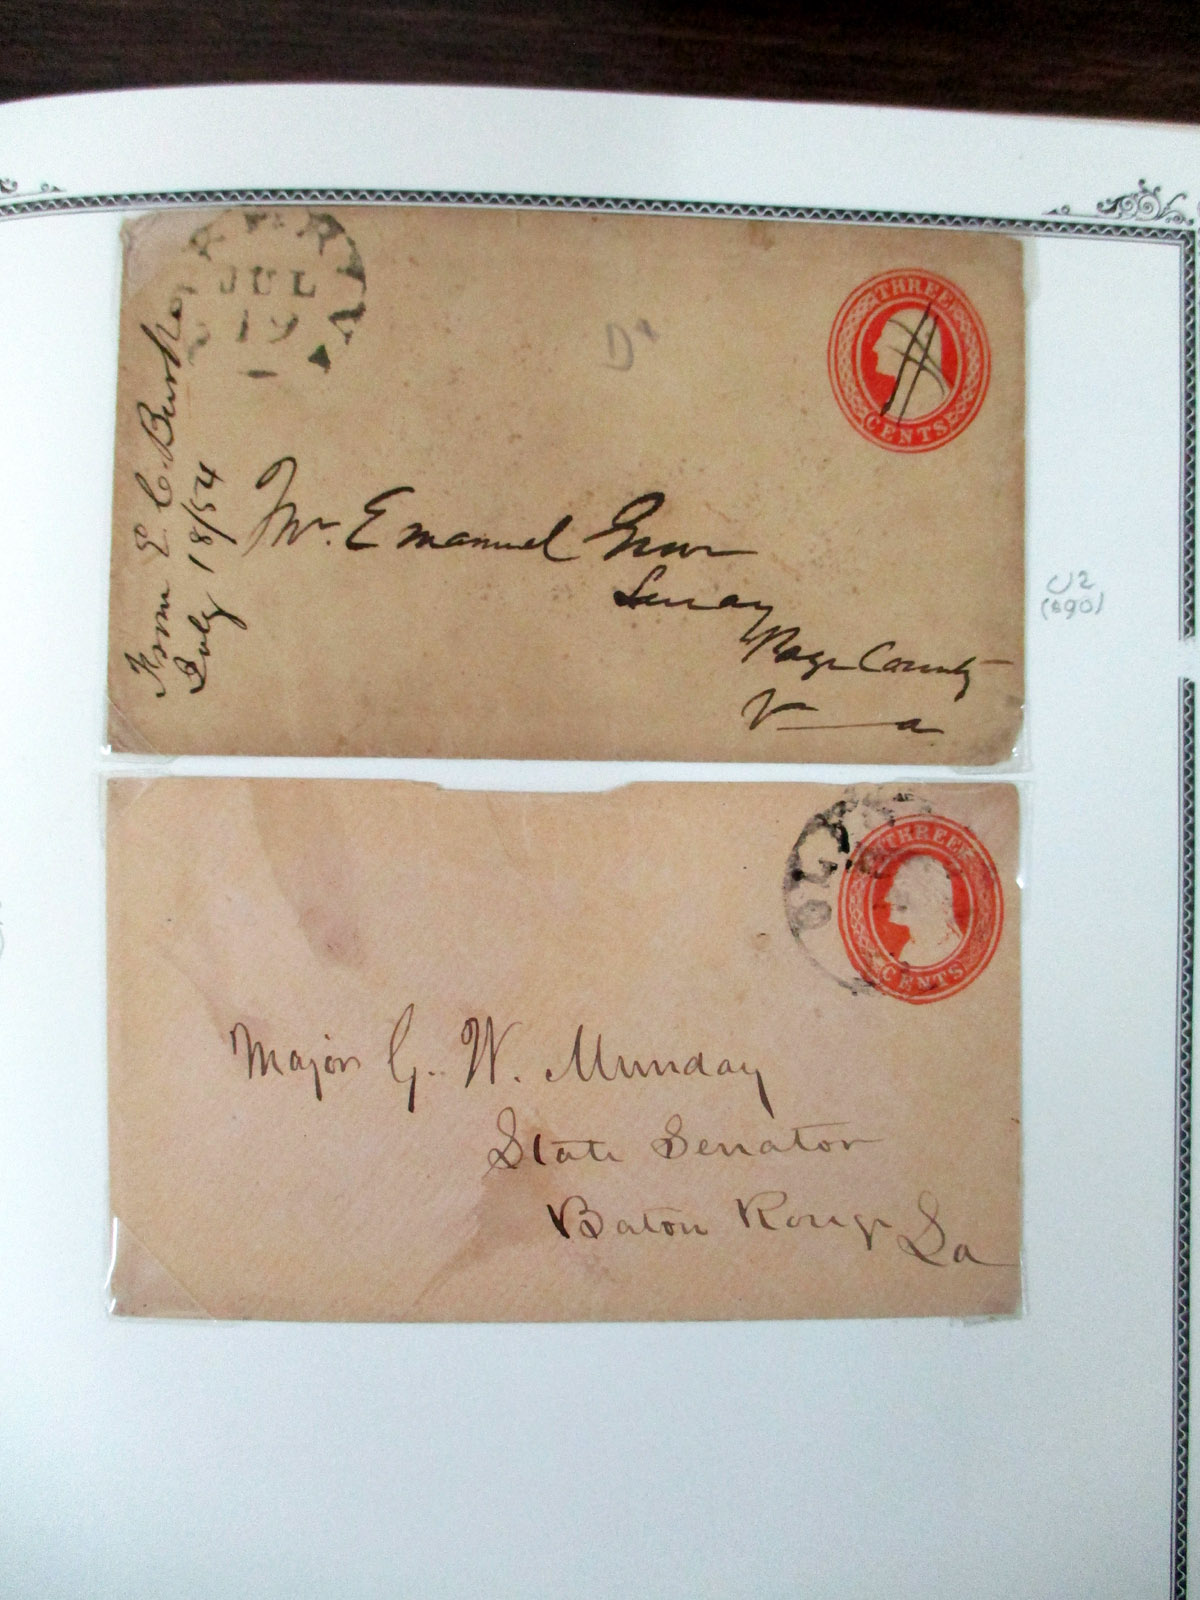 JUL
19
VA
THREE
CENTS
D
From E. C. Burke
July 18/54
Mr. Emanuel
Luray
Page County
Va
U2
($90)
THREE
CENTS
Major G. W. Munday
State Senator
Baton Rouge La